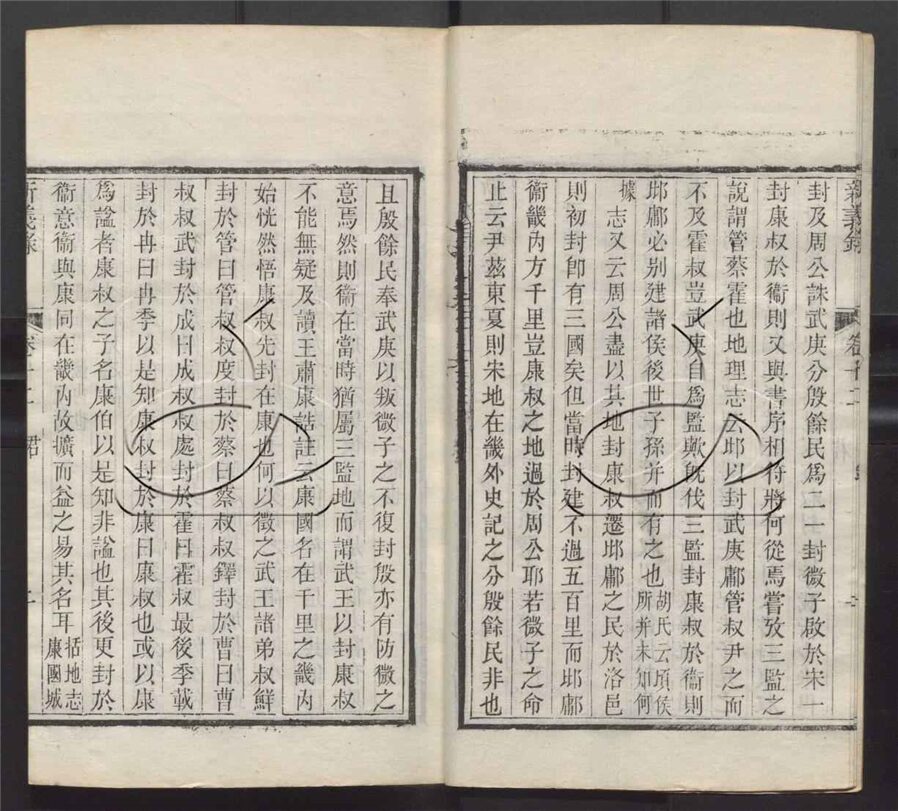 新義錄
卷十二
封及周公誅武庚分殷餘民爲二一封微子啟於宋一
封康叔於衞則又與書序相符將何從焉嘗攷三監之
說謂管蔡霍也地理志云邶以封武庚鄘管叔尹之而
不及霍叔豈武庚自爲監歟旣伐三監封康叔於衞則
邶鄘必別建諸侯後世子孫并而有之也胡氏云頃侯
所并未知何
據志又云周公盡以其地封康叔遷邶鄘之民於洛邑
則初封卽有三國矣但當時封建不過五百里而邶鄘
衞畿內方千里豈康叔之地過於周公耶若微子之命
止云尹茲東夏則宋地在畿外史記之分殷餘民非也
且殷餘民奉武庚以叛微子之不復封殷亦有防微之
意焉然則衞在當時猶屬三監地而謂武王以封康叔
不能無疑及讀王肅康誥註云康國名在千里之畿內
始恍然悟康叔先封在康也何以徵之武王諸弟叔鮮
封於管曰管叔叔度封於蔡曰蔡叔叔鐸封於曹曰曹
叔叔武封於成曰成叔叔處封於霍曰霍叔最後季載
封於冉曰冉季以是知康叔封於康曰康叔也或以康
爲諡者康叔之子名康伯以是知非諡也其後更封於
衞意衞與康同在畿內故擴而益之易其名耳括地志
康國城
新義錄
卷十二 君 二